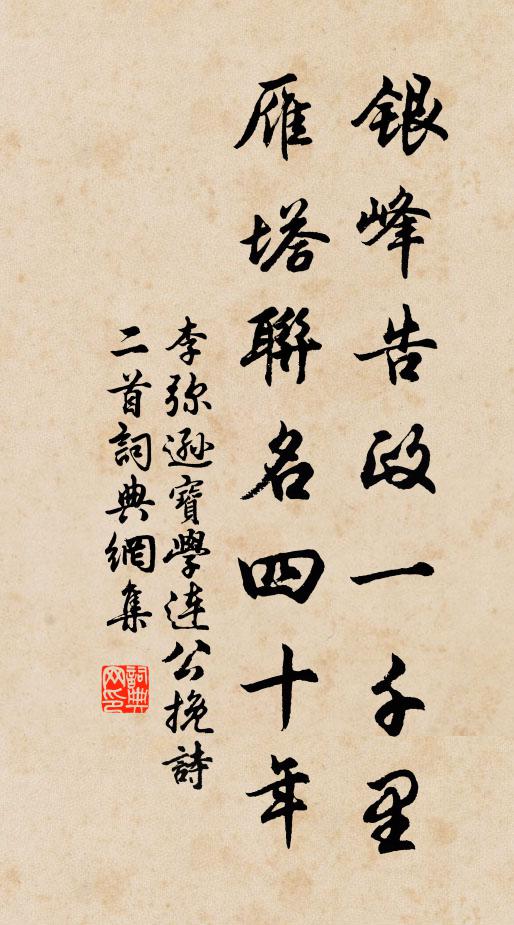 銀峰告政一千里
雁塔聯名四十年
李弥遜寶學連公挽詩
二首詞典網集
詞典
网印